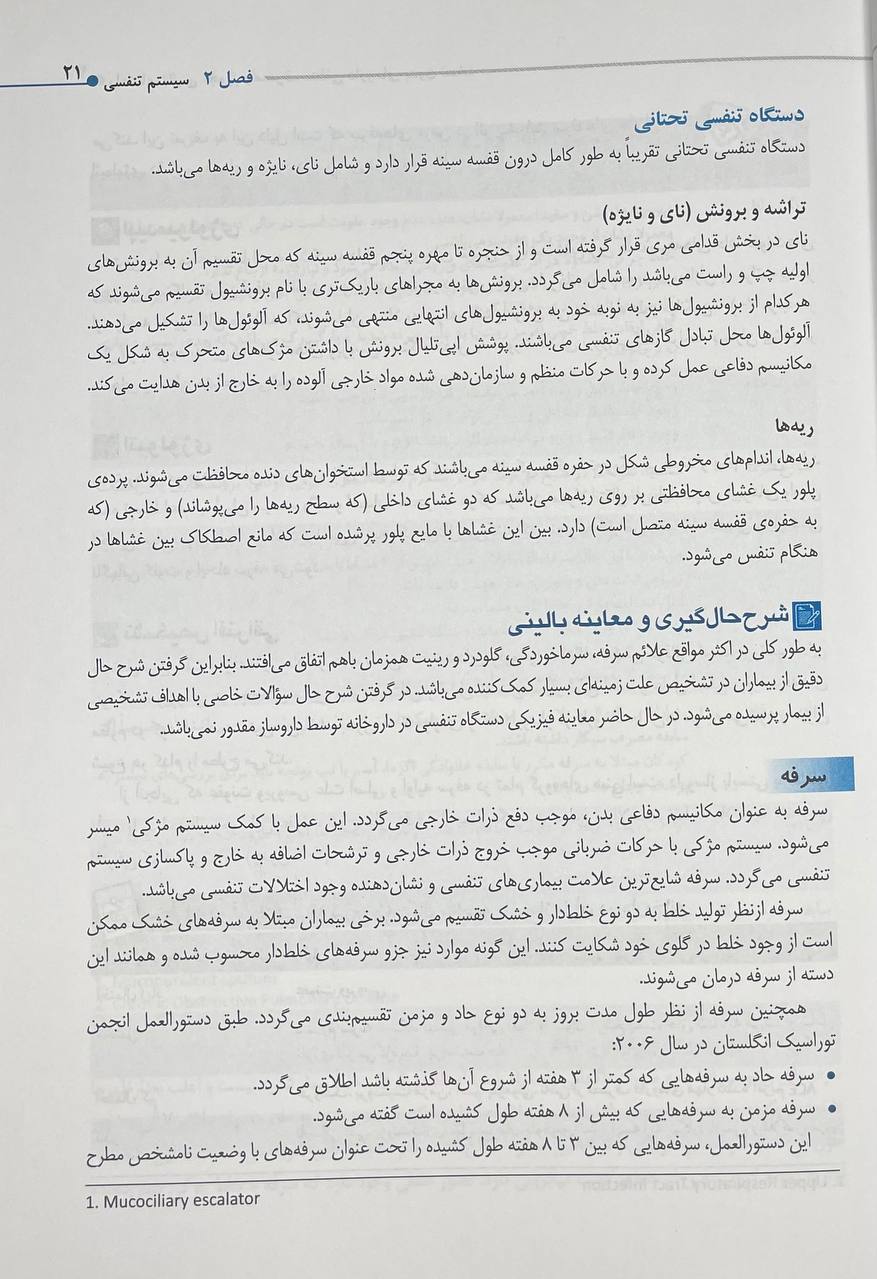 فصل ۲ سیستم تنفسی ۲۱
دستگاه تنفسی تحتانی
دستگاه تنفسی تحتانی تقریباً به طور کامل درون قفسه سینه قرار دارد و شامل نای، نایژه و ریه‌ها می‌باشد.
تراشه و برونش (نای و نایژه)
نای در بخش قدامی مری قرار گرفته است و از حنجره تا مهره پنجم قفسه سینه که محل تقسیم آن به برونش‌های
اولیه چپ و راست می‌باشد را شامل می‌گردد. برونش‌ها به مجراهای باریک‌تری با نام برونشیول تقسیم می‌شوند که
هرکدام از برونشیول‌ها نیز به نوبه خود به برونشیول‌های انتهایی منتهی می‌شوند، که آلوئول‌ها را تشکیل می‌دهند.
آلوئول‌ها محل تبادل گازهای تنفسی می‌باشند. پوشش اپی‌تلیال برونش با داشتن مژک‌های متحرک به شکل یک
مکانیسم دفاعی عمل کرده و با حرکات منظم و سازمان‌دهی شده مواد خارجی آلوده را به خارج از بدن هدایت می‌کند.
ریه‌ها
ریه‌ها، اندام‌های مخروطی شکل در حفره قفسه سینه می‌باشند که توسط استخوان‌های دنده محافظت می‌شوند. پرده‌ی
پلور یک غشای محافظتی بر روی ریه‌ها می‌باشد که دو غشای داخلی (که سطح ریه‌ها را می‌پوشاند) و خارجی (که
به حفره‌ی قفسه سینه متصل است) دارد. بین این غشاها با مایع پلور پرشده است که مانع اصطکاک بین غشاها در
هنگام تنفس می‌شود.
شرح‌حال‌گیری و معاینه بالینی
به طور کلی در اکثر مواقع علائم سرفه، سرماخوردگی، گلودرد و رینیت همزمان باهم اتفاق می‌افتند. بنابراین گرفتن شرح حال
دقیق از بیماران در تشخیص علت زمینه‌ای بسیار کمک‌کننده می‌باشد. در گرفتن شرح حال سؤالات خاصی با اهداف تشخیصی
از بیمار پرسیده می‌شود. در حال حاضر معاینه فیزیکی دستگاه تنفسی در داروخانه توسط داروساز مقدور نمی‌باشد.
سرفه
سرفه به عنوان مکانیسم دفاعی بدن، موجب دفع ذرات خارجی می‌گردد. این عمل با کمک سیستم مژکی۱ میسر
می‌شود. سیستم مژکی با حرکات ضربانی موجب خروج ذرات خارجی و ترشحات اضافه به خارج و پاکسازی سیستم
تنفسی می‌گردد. سرفه شایع‌ترین علامت بیماری‌های تنفسی و نشان‌دهنده وجود اختلالات تنفسی می‌باشد.
سرفه ازنظر تولید خلط به دو نوع خلط‌دار و خشک تقسیم می‌شود. برخی بیماران مبتلا به سرفه‌های خشک ممکن
است از وجود خلط در گلوی خود شکایت کنند. این گونه موارد نیز جزو سرفه‌های خلط‌دار محسوب شده و همانند این
دسته از سرفه درمان می‌شوند.
همچنین سرفه از نظر طول مدت بروز به دو نوع حاد و مزمن تقسیم‌بندی می‌گردد. طبق دستورالعمل انجمن
توراسیک انگلستان در سال ۲۰۰۶:
• سرفه حاد به سرفه‌هایی که کمتر از ۳ هفته از شروع آن‌ها گذشته باشد اطلاق می‌گردد.
• سرفه مزمن به سرفه‌هایی که بیش از ۸ هفته طول کشیده است گفته می‌شود.
این دستورالعمل، سرفه‌هایی که بین ۳ تا ۸ هفته طول کشیده را تحت عنوان سرفه‌های با وضعیت نامشخص مطرح
1. Mucociliary escalator